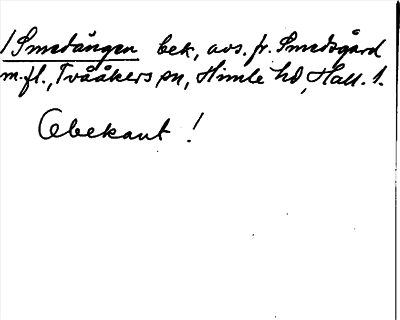 /Smedängen bek, avs. fr. Smedsgård
m.fl., Tvååkers sn, Himle hd, Hall. l.
Obekant!